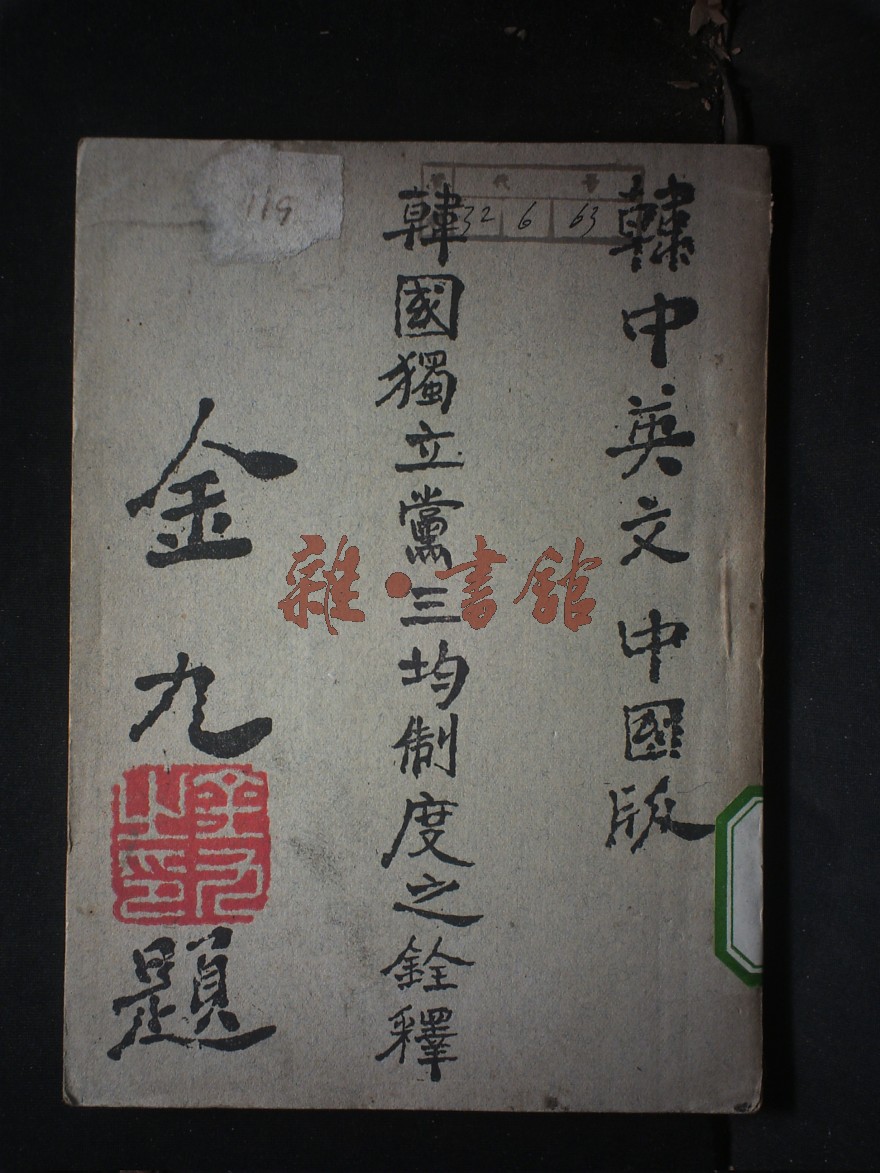 韓中英文 中國版
韓國獨立黨三均制度之銓釋
金九題
金九之印
雜·書館
代 号
32 6 63
119